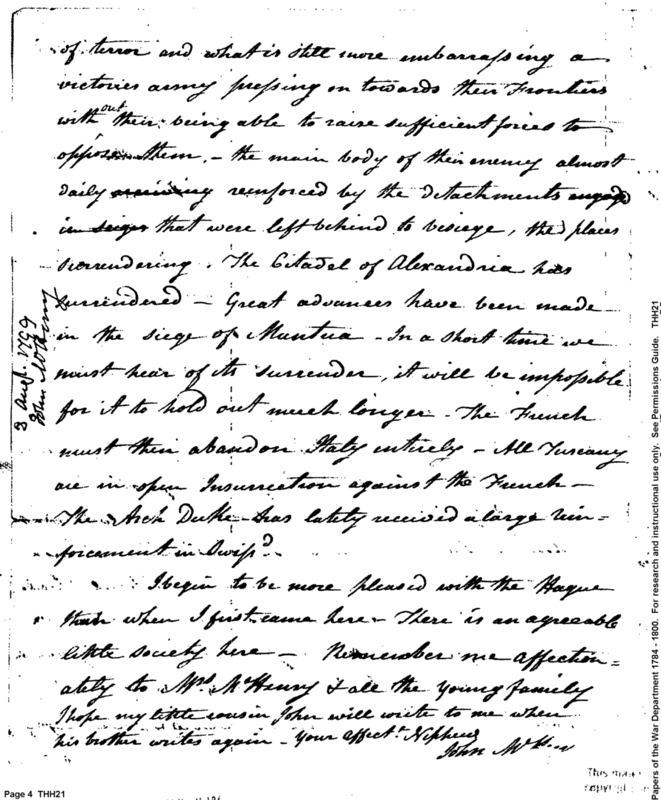 of terror and what is still more embarrassing a
victories army pressing on towards their Frontiers
without their being able to raise sufficient forces to
oppose them, - the main body of their enemy almost
daily reinforced by the detachments engaged
in seiges that were left behind to beseige, the places
surrendering. The Citadel of Alexandria has
surrendered - Great advances have been made
in the siege of Mantua - In a short time we
must hear of its surrender, it will be impossible
for it to hold out much longer - The French
must then abandon Italy entirely - All Tuscany
are in open Insurrection against the French -
The Arch Duke has lately received a large rein=
forcement in Swissd.
I begin to be more pleased with the Hague
than when I first came here - There is an agreeable
little society here - Remember me affection=
ately to Mrs. McHenry & all the young family
I hope my little cousin John will write to me when
his brother writes again - your affectt. Nephew
John McH
3 Augt. 1799
John McHenry
Page 4 THH21
Papers of the War Department 1784 - 1800. For research and instructional use only. See Permissions Guide. THH21